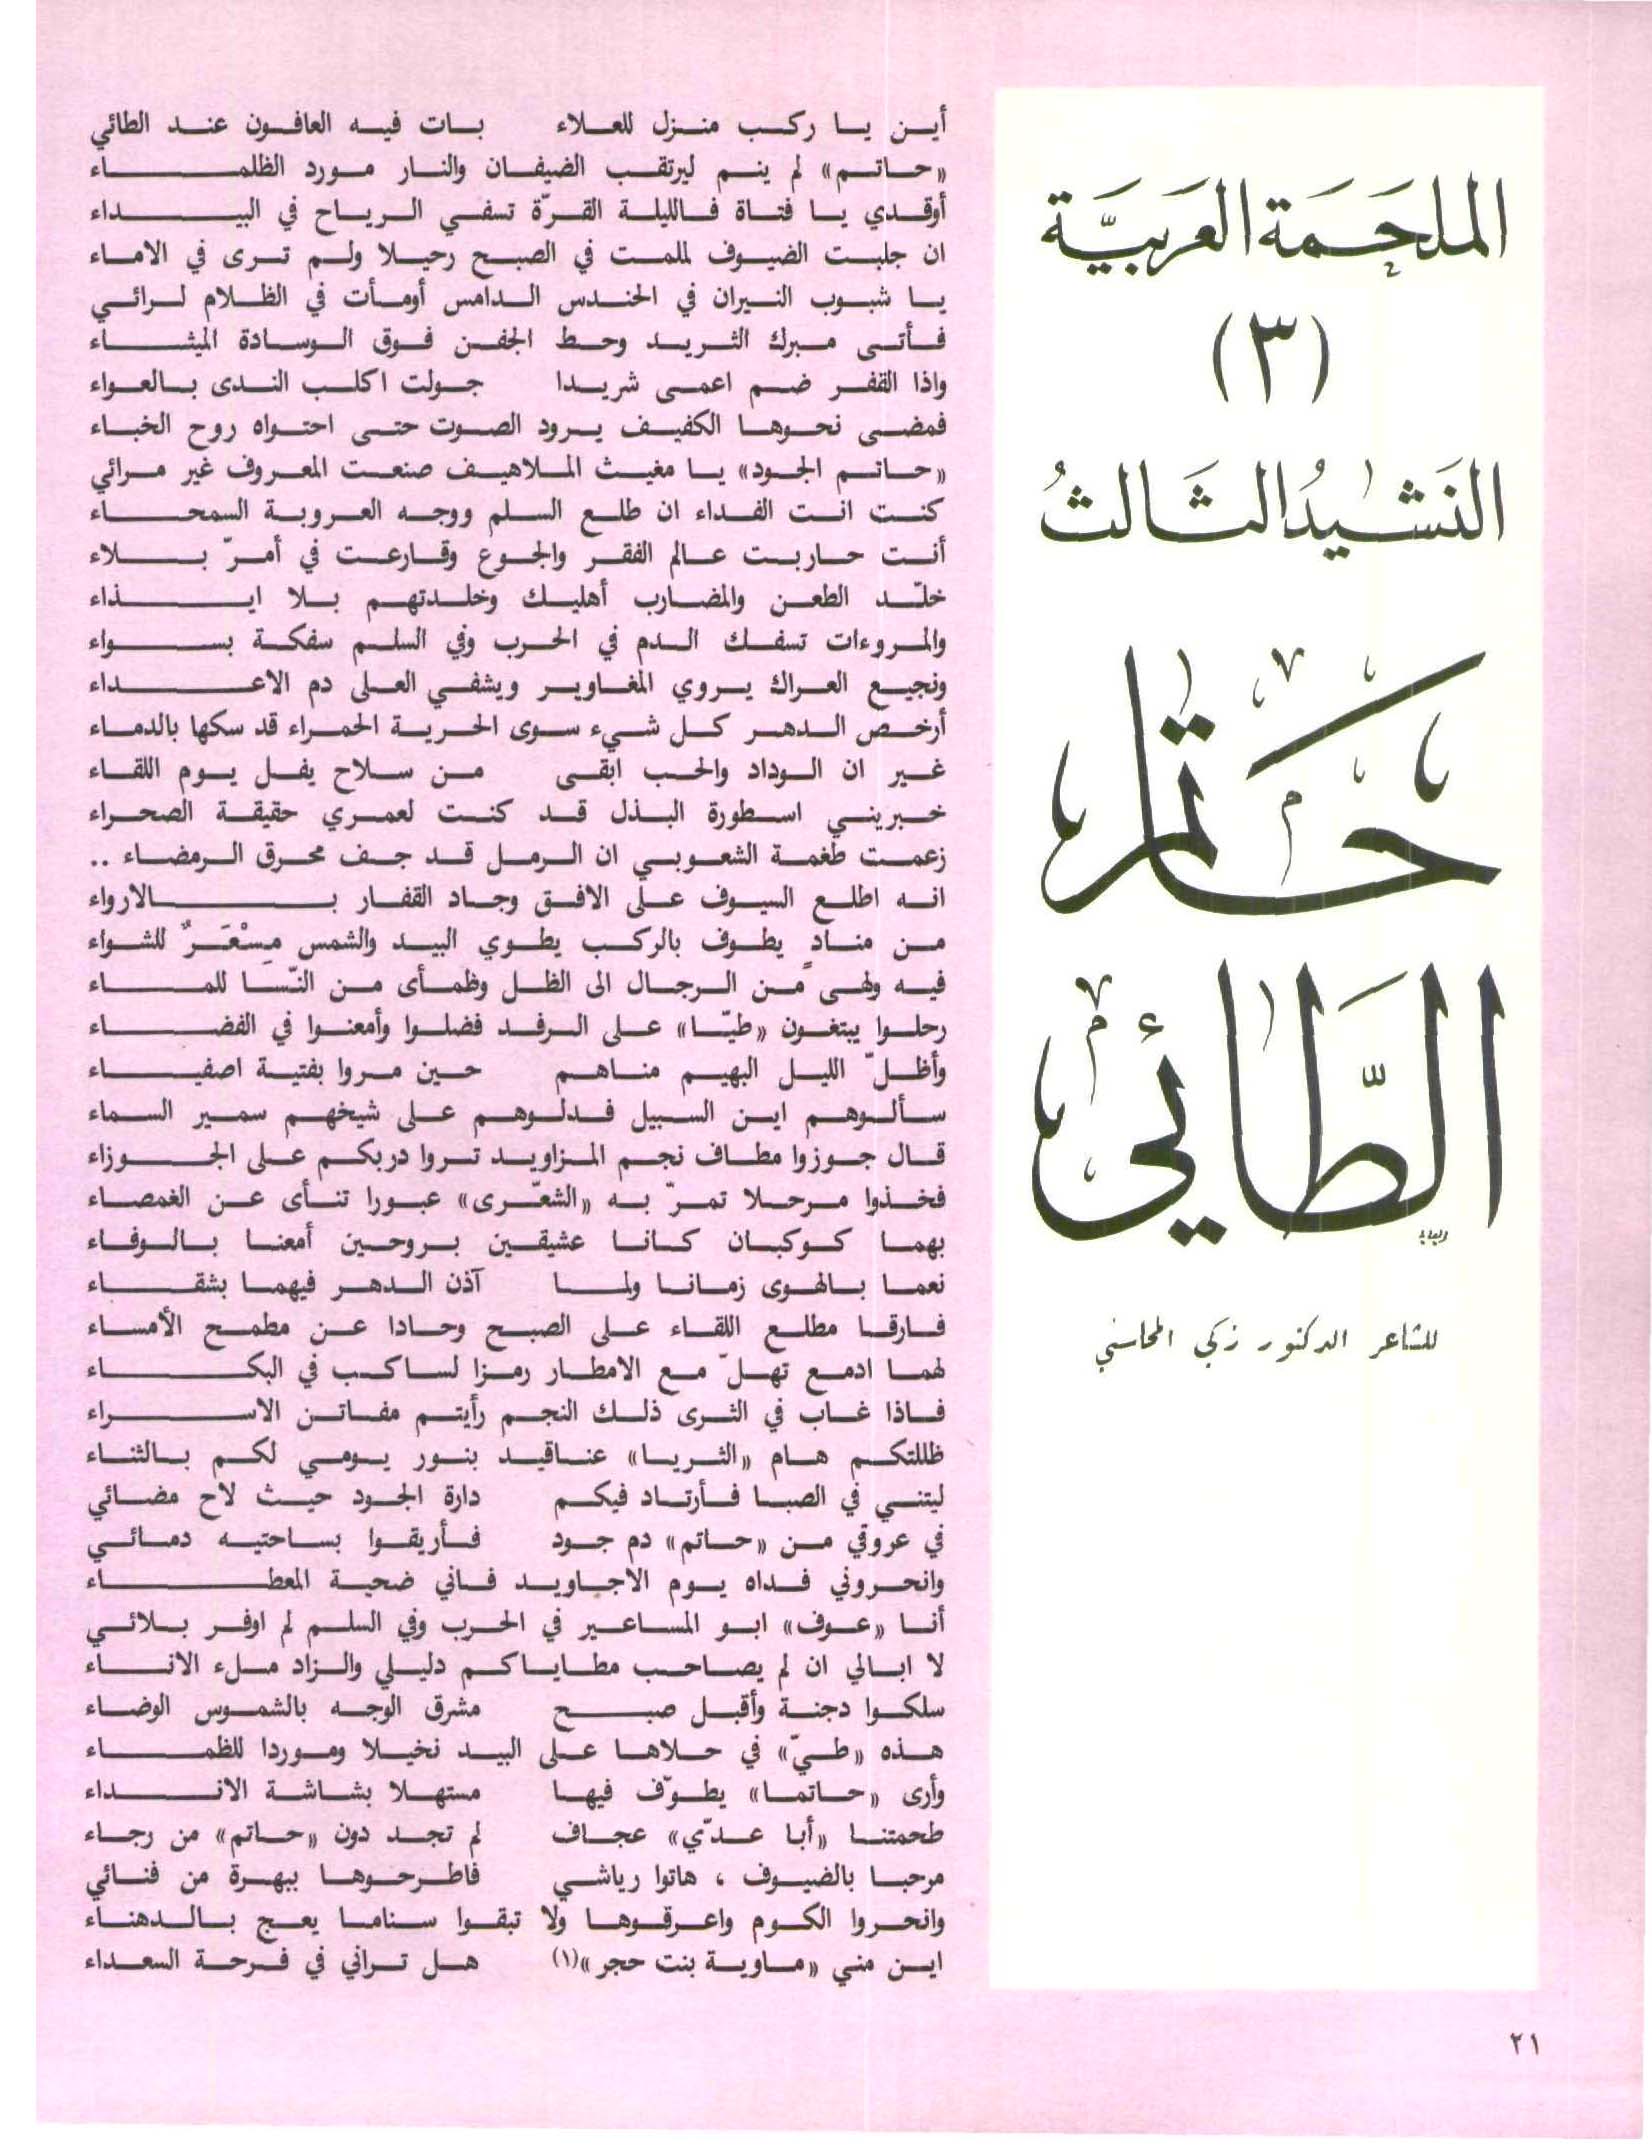 الملحمة العربيّة
(٣)
النشيد الثالث
حاتم
الطّائي
للشاعر الدكتور زكي المحاسني
أين يا ركب منزل للعلاء بات فيه العافون عند الطائي
«حاتم» لم ينم ليرتقب الضيفان والنار مورد الظلماء
أوقدي يا فتاة فالليلة القرّة تسفي الرياح في البيداء
ان جلبت الضيوف للمت في الصبح رحيلا ولم ترى في الاماء
يا شبوب النيران في الحندس الدامس أومأت في الظلام لرائي
فأتى مبرك الثريد وحط الجفن فوق الوسادة الميثاء
واذا القفر ضم اعمى شريدا جولت اكلب الندى بالعواء
فمضى نحوها الكفيف يرود الصوت حتى احتواه روح الخباء
«حاتم الجود» يا مغيث الملاهيف صنعت المعروف غير مرائي
كنت انت الفداء ان طلع السلم ووجه العروبة السمحاء
أنت حاربت عالم الفقر والجوع وقارعت في أمرّ بلاء
خلّد الطعن والمضارب أهليك وخلدتهم بلا ايذاء
والمروءات تسفك الدم في الحرب وفي السلم سفكة بسواء
ونجيع العراك يروي المغاوير ويشفي العلى دم الاعداء
أرخص الدهر كل شيء سوى الحرية الحمراء قد سكها بالدماء
غير ان الوداد والحب ابقى من سلاح يفل يوم اللقاء
خبريني اسطورة البذل قد كنت لعمري حقيقة الصحراء
زعمت طغمة الشعوبي ان الرمل قد جف محرق الرمضاء ..
انه اطلع السيوف على الافق وجاد القفار بالارواء
من منادٍ يطوف بالركب يطوي البيد والشمس مِسْعَرٌ للشواء
فيه ولهى من الرجال الى الظل وظمأى من النّسا للماء
رحلوا يبتغون «طيّا» على الرفد فضلوا وأمعنوا في الفضاء
وأظلّ الليل البهيم مناهم حين مروا بفتية اصفياء
سألوهم اين السبيل فدلوهم على شيخهم سمير السماء
قال جوزوا مطاف نجم المزاويد تروا دربكم على الجوزاء
فخذوا مرحلا تمرّ به «الشعّرى» عبورا تنأى عن الغمصاء
بهما كوكبان كانا عشيقين بروحين أمعنا بالوفاء
نعما بالهوى زمانا ولما آذن الدهر فيهما بشقاء
فارقا مطلع اللقاء على الصبح وحادا عن مطمح الأمساء
لهما ادمع تهلّ مع الامطار رمزا لساكب في البكاء
فاذا غاب في الثرى ذلك النجم رأيتم مفاتن الاسراء
ظللتكم هام «الثريا» عناقيد بنور يومي لكم بالثناء
ليتني في الصبا فأرتاد فيكم دارة الجود حيث لاح مضائي
في عروقي من «حاتم» دم جود فأريقوا بساحتيه دمائي
وانحروني فداه يوم الاجاويد فاني ضحية المعطاء
أنا «عوف» ابو المساعير في الحرب وفي السلم لم اوفر بلائي
لا ابالي ان لم يصاحب مطاياكم دليلي والزاد ملء الاناء
سلكوا دجنة وأقبل صبح مشرق الوجه بالشموس الوضاء
هذه «طيّ» في حلاها على البيد نخيلا وموردا للظماء
وأرى «حاتما» يطوّف فيها مستهلا بشاشة الانداء
طحمتنا «أبا عدّي» عجاف لم تجد دون «حاتم» من رجاء
مرحبا بالضيوف ، هاتوا رياشي فاطرحوها ببهرة من فنائي
وانحروا الكوم واعرقوها ولا تبقوا سناما يعج بالدهناء
اين مني «ماوية بنت حجر»(١) هل تراني في فرحة السعداء
٢١